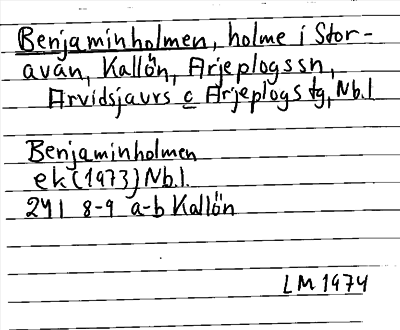 Benjaminholmen, holme i Stor-
avan, Kallön, Arjeplogs sn,
Arvidsjaurs o Arjeplogs tg, Nb.l
Benjaminholmen
ek (1973) Nb.l.
241 8-9 a-b Kallön
LM 1974